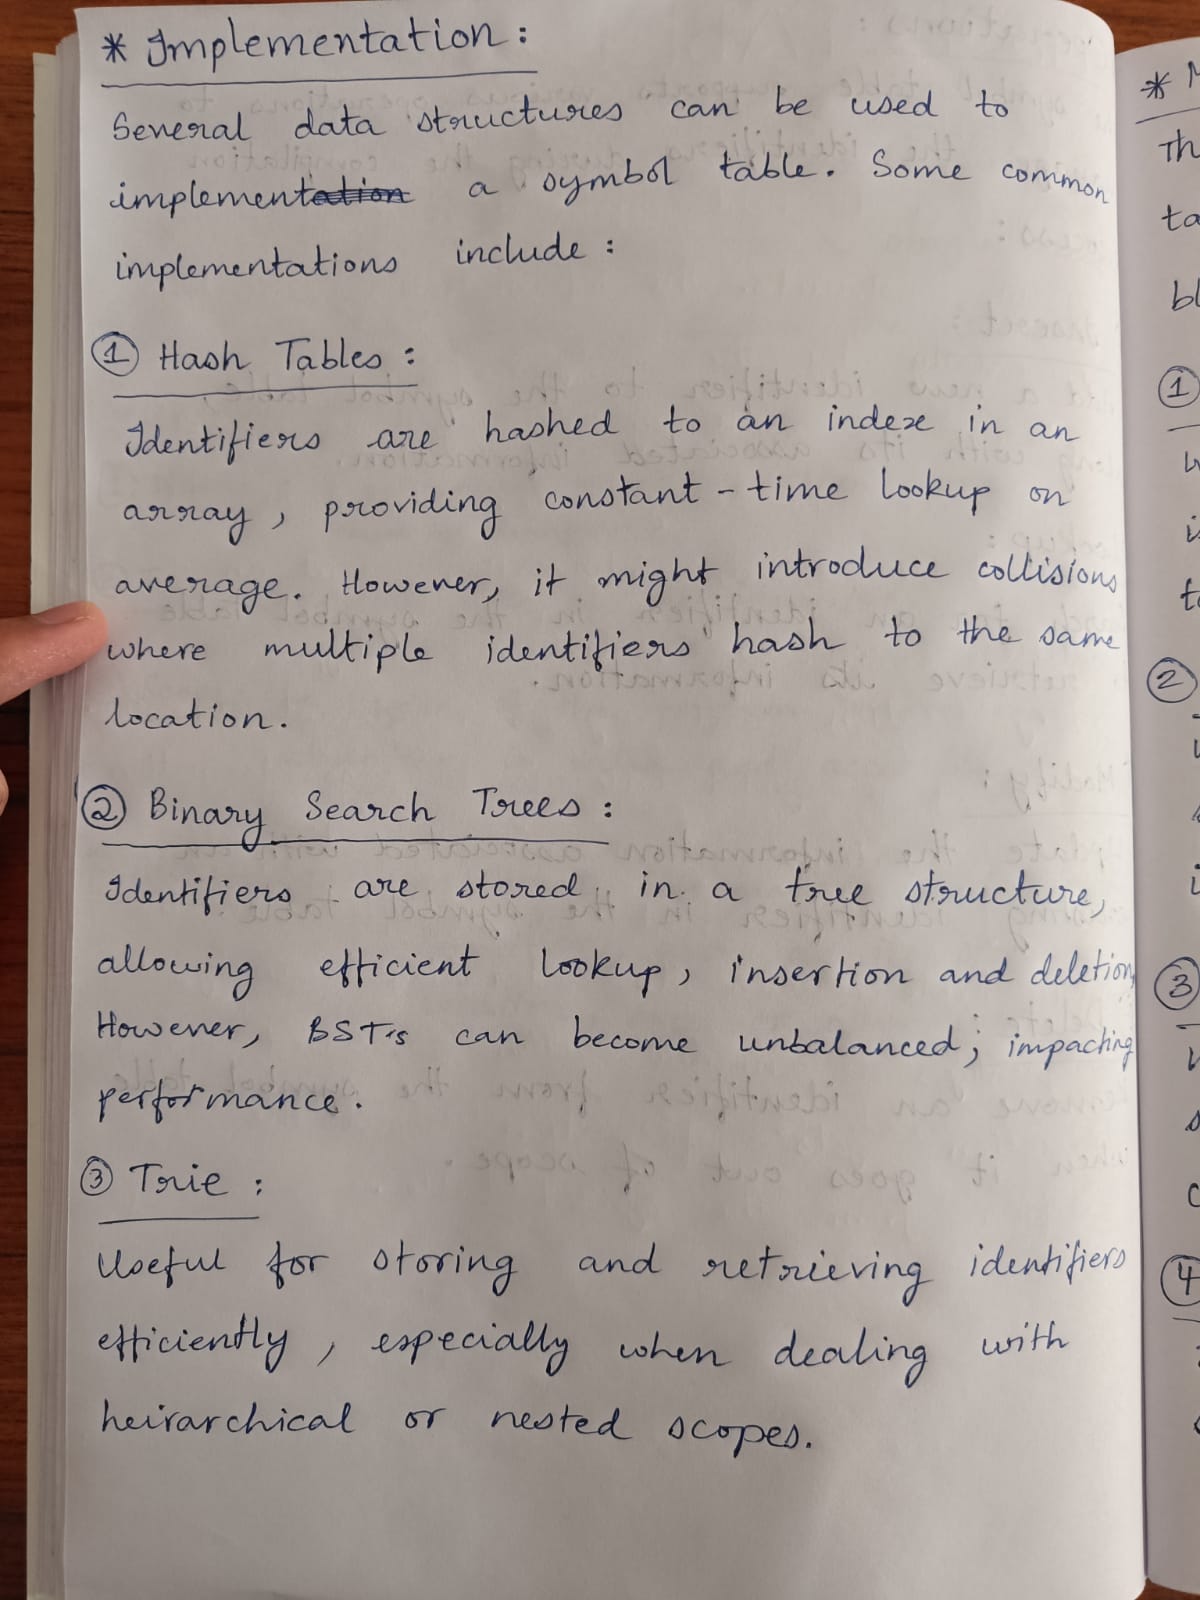 * Implementation :
Several data structures can be used to
implement a symbol table. Some common
implementations include :
① Hash Tables :
Identifiers are hashed to an index in an
array, providing constant-time lookup on
average. However, it might introduce collisions
where multiple identifiers hash to the same
location.
② Binary Search Trees :
Identifiers are stored in a tree structure,
allowing efficient lookup, insertion and deletion,
However, BST's can become unbalanced, impacting
performance.
③ Trie :
Useful for storing and retrieving identifiers
efficiently, especially when dealing with
heirarchical or nested scopes.
*
Th
ta
bl
①
②
③
④